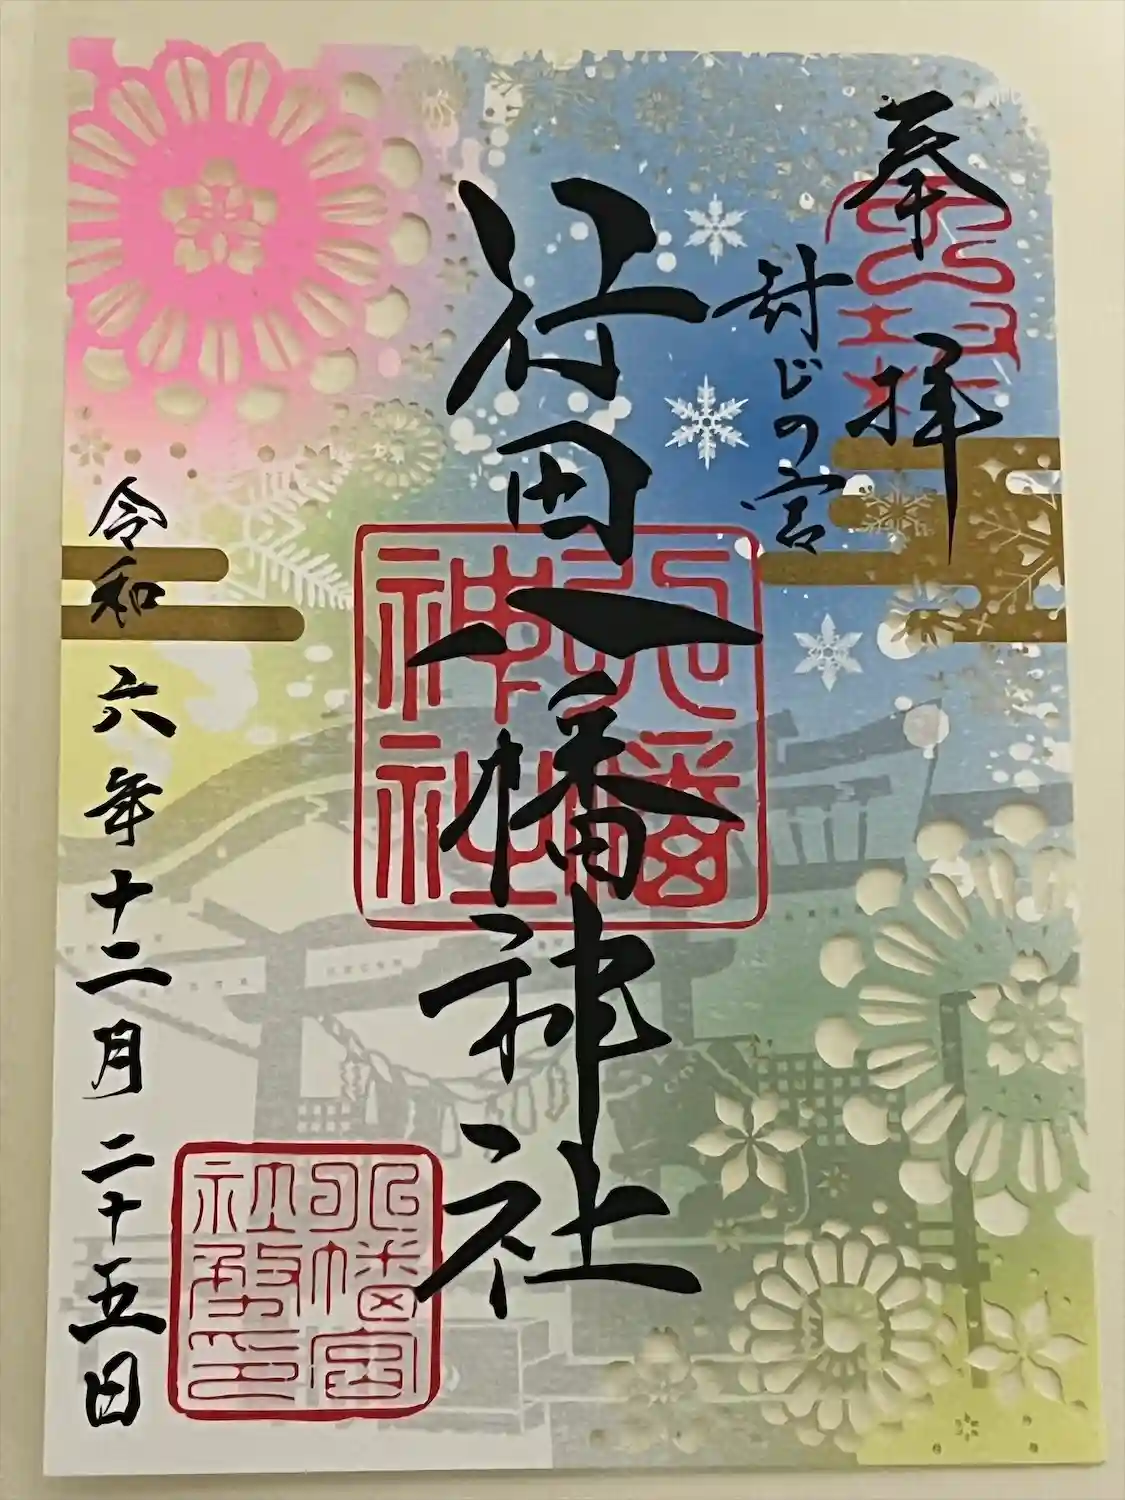 奉拝
封じの宮
行田八幡神社
八幡
神社
八幡宮
社務印
令和六年十二月二十五日